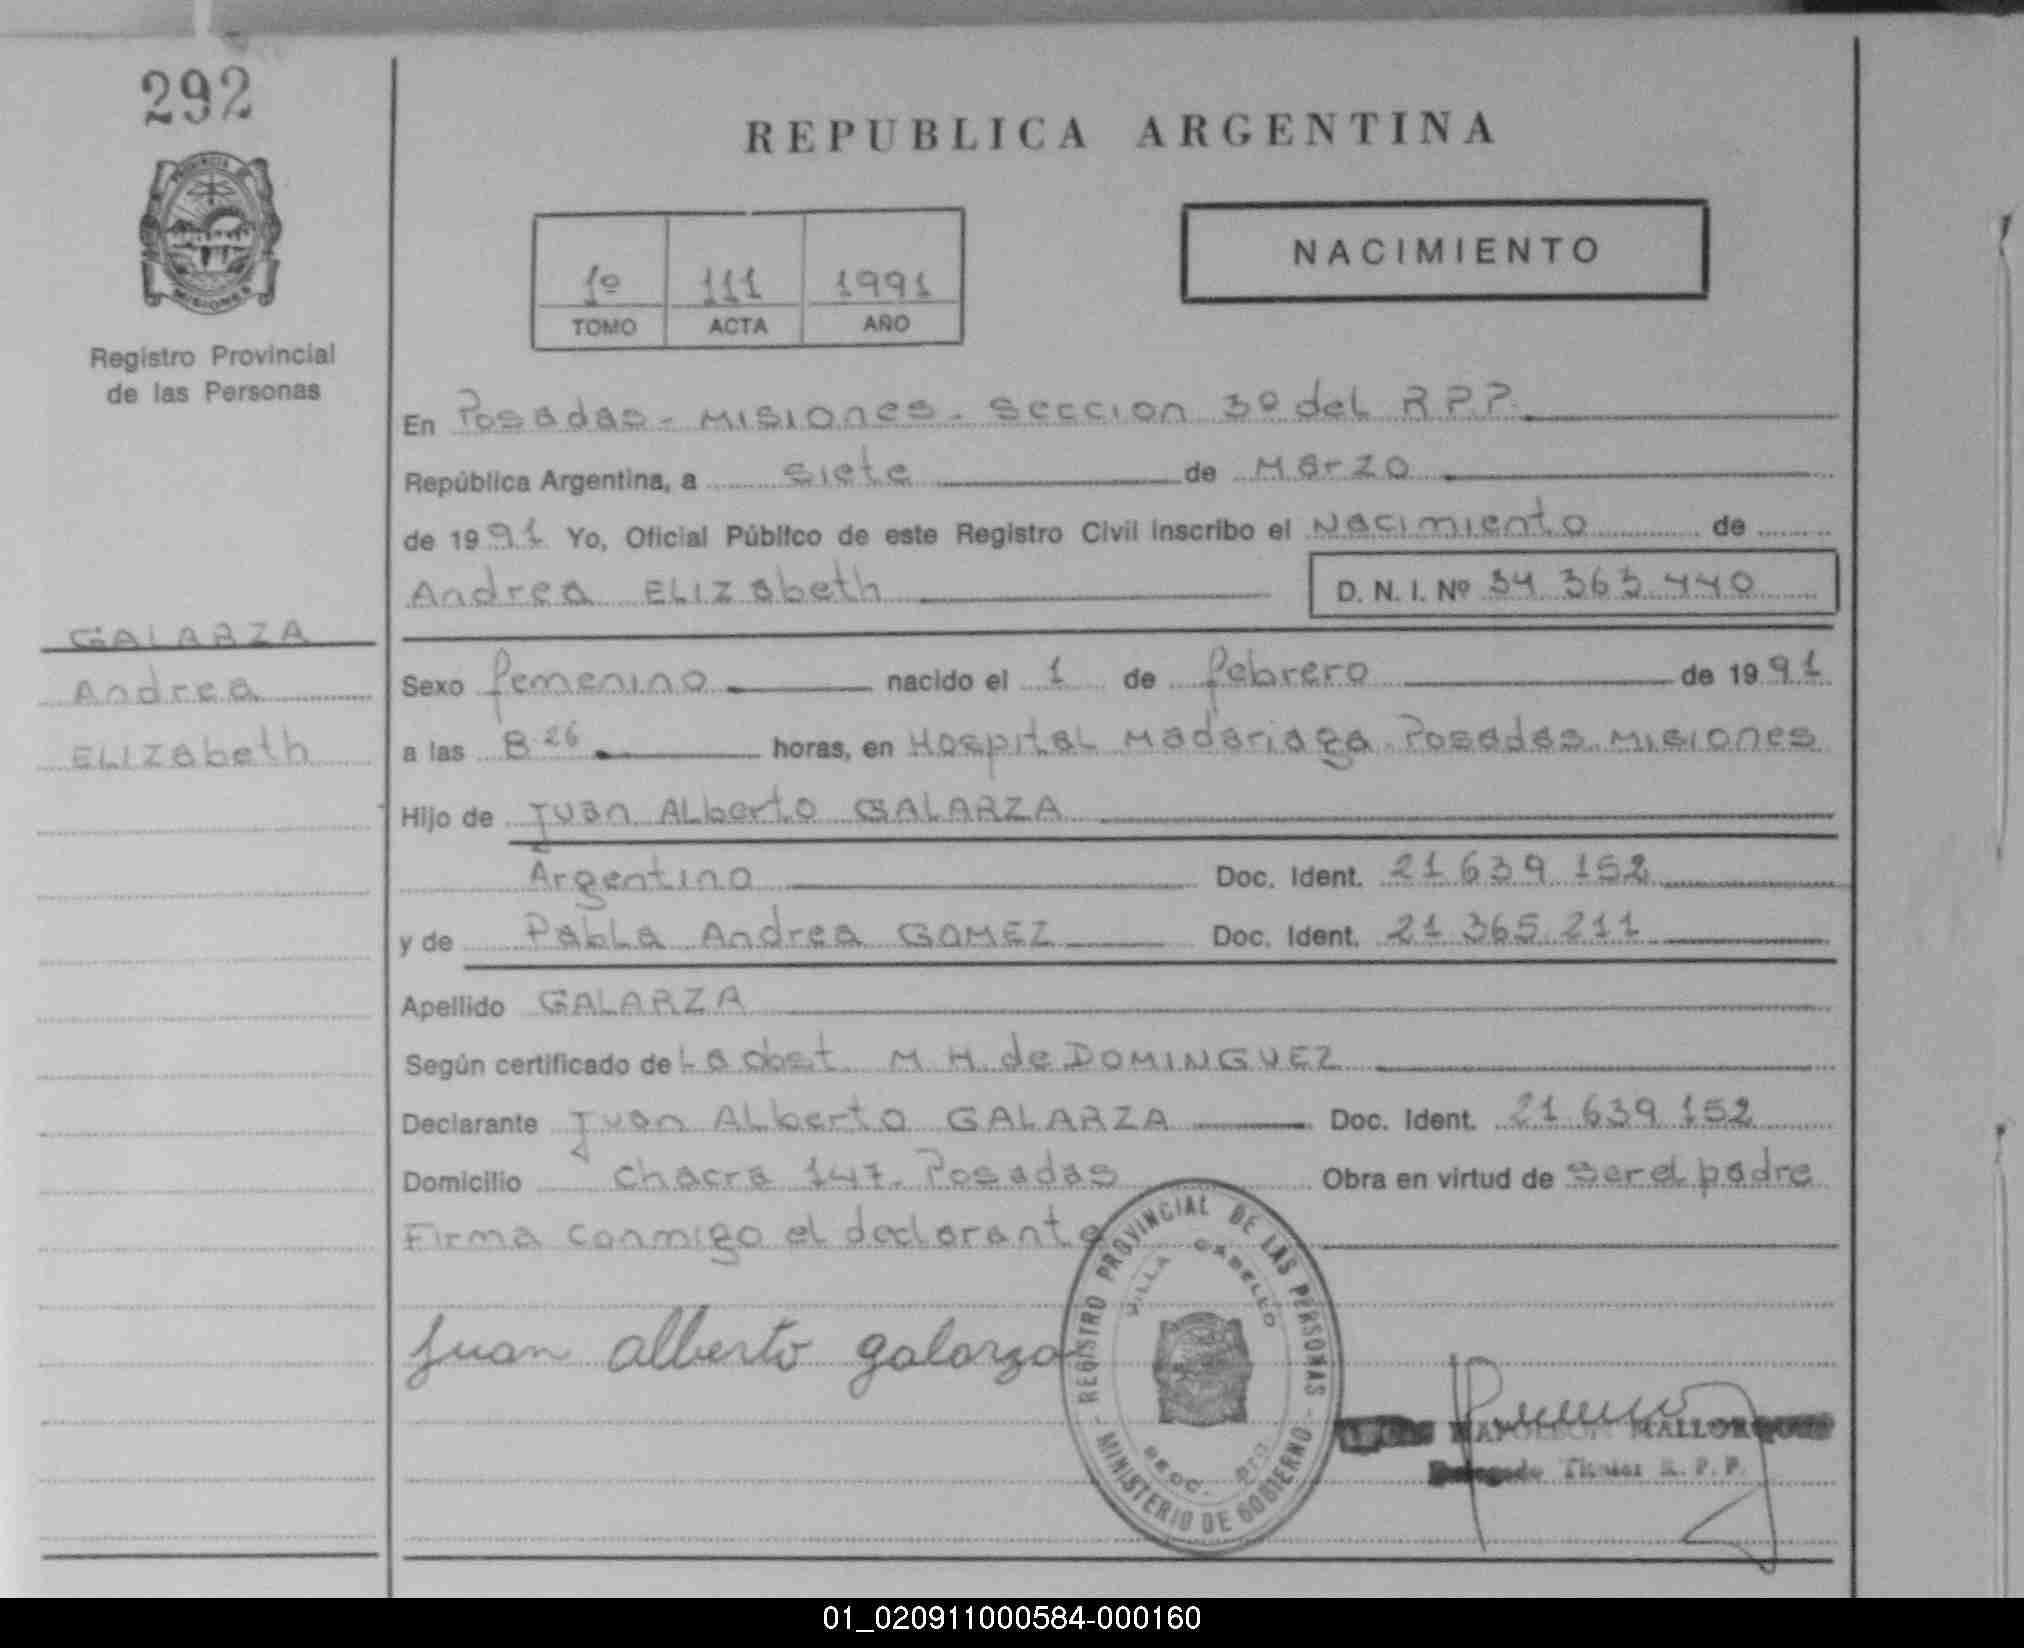 292
REPUBLICA ARGENTINA
PROVINCIA DE
MISIONES
Registro Provincial
de las Personas
1º 111 1991
TOMO ACTA AÑO
NACIMIENTO
En Posadas - Misiones - Seccion 3º del R.P.P.
República Argentina, a siete de Marzo
de 1991 Yo, Oficial Público de este Registro Civil inscribo el Nacimiento de
Andrea Elizabeth D. N. I. Nº 34.363.440
GALARZA
Andrea
Elizabeth
Sexo femenino nacido el 1 de febrero de 1991
a las 8 26 horas, en Hospital Madariaga. Posadas. Misiones
Hijo de Juan Alberto GALARZA
Argentino Doc. Ident. 21 639 152
y de Pabla Andrea GOMEZ Doc. Ident. 21 365 211
Apellido GALARZA
Según certificado de La obst. M. H. de DOMINGUEZ
Declarante Juan Alberto GALARZA Doc. Ident. 21 639 152
Domicilio Chacra 147. Posadas Obra en virtud de ser el padre
Firma conmigo el declarante
Juan alberto galarza
REGISTRO PROVINCIAL DE LAS PERSONAS
VILLA CABELLO
SECC. 3ra
- MINISTERIO DE GOBIERNO -
NAPOLEON
Delegado Titular R. P. P.
01_020911000584-000160